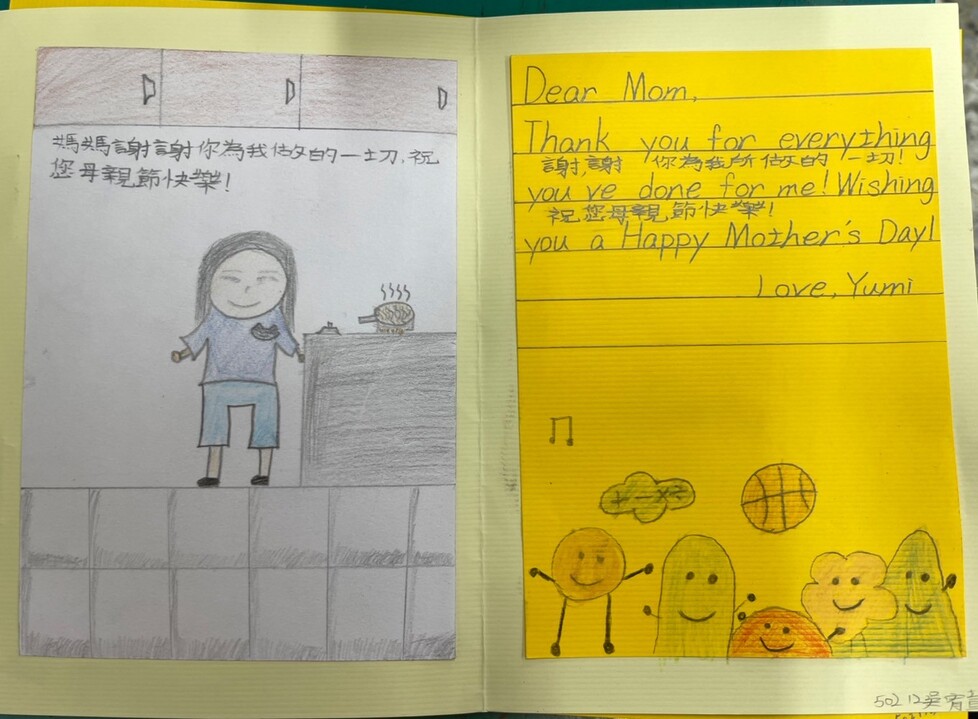 媽媽謝謝你為我做的一切,祝
您母親節快樂!
Dear Mom,
Thank you for everything
謝謝 你為我所做的 一切!
you've done for me! Wishing
祝您母親節快樂!
you a Happy Mother's Day!
Love, Yumi
+-×÷
502 12 吳宥